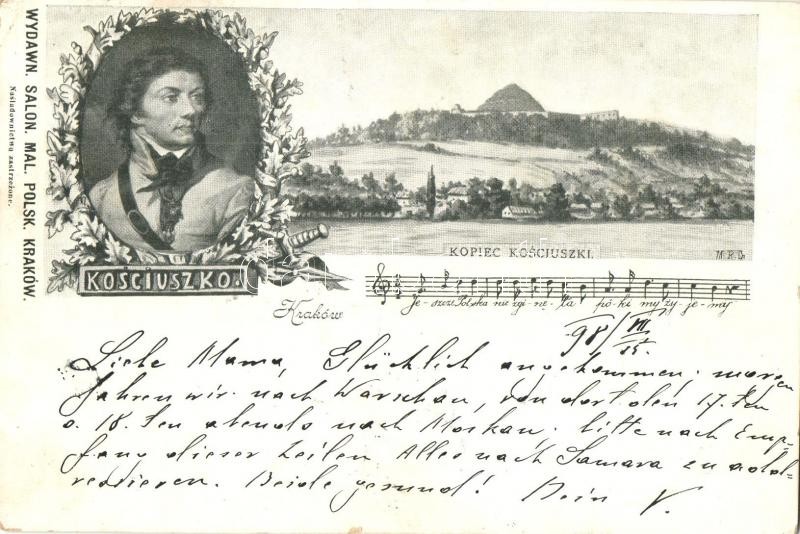 WYDAWN. SALON. MAL. POLSK. KRAKÓW.
Naśladownictwo zastrzeżone.
KOŚCIUSZKO.
KOPIEC KOŚCIUSZKI.
Je-szcze Polska nie zgi-nę-ła pó-ki my ży-je-my
Kraków
98/VII
Liebe Mama, Glücklich angekommen; morgen
fahren wir nach Warschau, von dort den 17. ten
o. 18. ten abends nach Moskau. bitte nach Emp-
fang dieser Zeilen Alles nach Samara zu add-
ressieren. Beide gesund! Dein V.